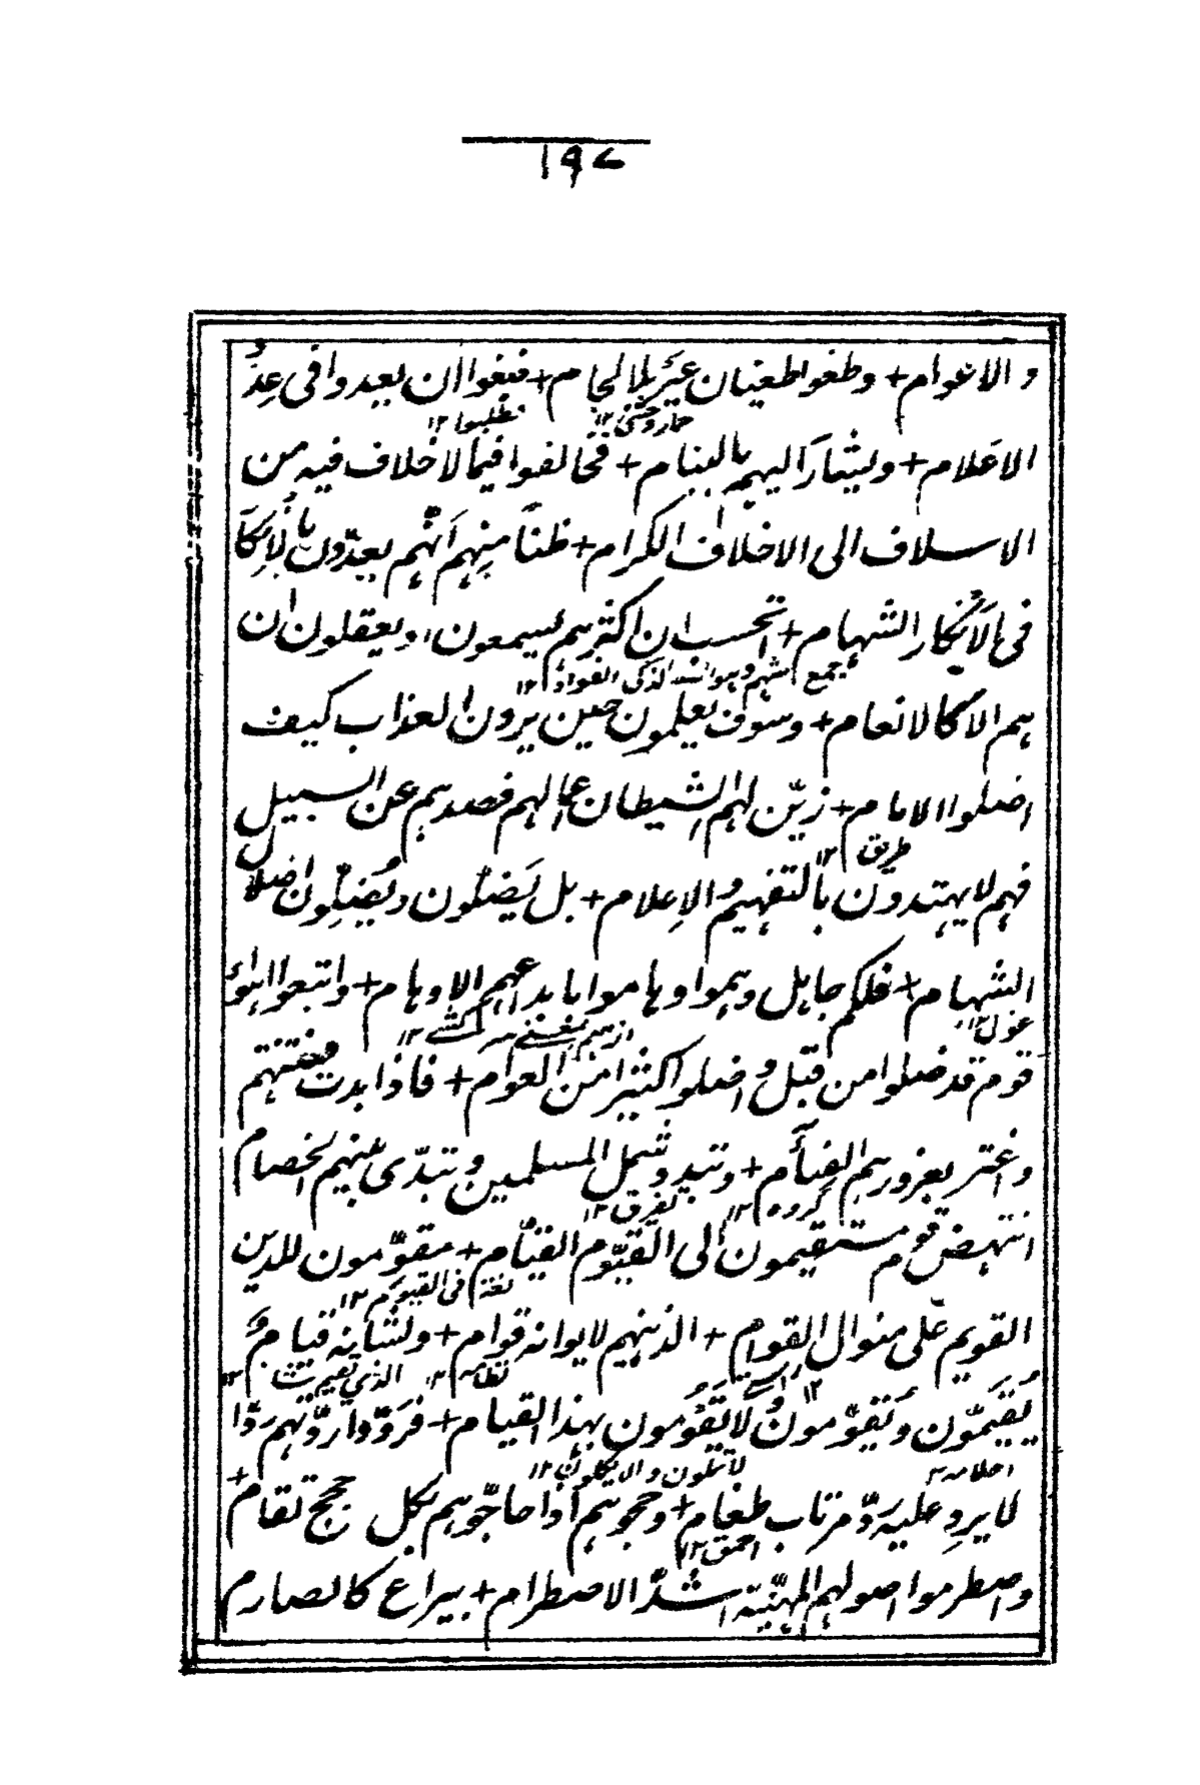 ١٩٧
والاعوام + وطغوا طغيان عَيرٍ بلا لجام + فبغوا ان يعدوا فى عِدُ
حمار وحشى ١٢ تطلبوا ١٢
الاعَلام + ويشارَ اليهم بالبنام + فخالفوا فيما لا خلاف فيه من
الاسلاف الى الاخلاف الكرام + ظناً مِنهم اَنهُّم يعدّون بالُاِنكاَ
فى بالَاَنكار الشهام + اتحسب ان اكثرهم يسمعون او يعقلون ان
جمع شهم وهو السند الذكى الفواد ١٢
هم الا كالانعام + وسوف يعلمون حين يرون العذاب كيف
اضلوا الامام + زيّن لهم الشيطان اعمالهم فصدهم عن السبيل
طريق ١٢
فهم لا يهتدون بالتفهيم والاِعلام + بل يَضلّون ويُضِلّون اضلا
الشهام + فلكم جاهل وهموا وهاموا بابدعهم الاوهام + واتبعوا اهواءَ
غول ١٢
قوم قد ضلوا من قبل واضلوا كثيرا من العوام + فاذا بدت فتنتهم
واغتر بغرورهم الفِئاَم + وتبدد شمل المسلمين وتبدّى منهم الخصام
گروه ١٢ تفرق ١٢
انتهض قوم مستقيمون الى القيّوم القيّام + مقوّمون للدين
لغة فى القيوم ١٢
القويم على منوال القوام + الذينهم لايوانه قوام + ولشانه قيام
نظام ١٢ الذي يقيم
يُقَيمّون وَيَقوّمون ولا يَتَقَوَّمون بهذا القيام + فرَدّوا ردّهم ردّا
لا يردِ عليه رَدّ مرتاب طغام + وحجوهم اذا حاجّوهم بكل حجج تقام +
احمق ١٢
واصطرموا اصولهم المهيّنة اشدّ الاصطرام + بيراع كالصارم